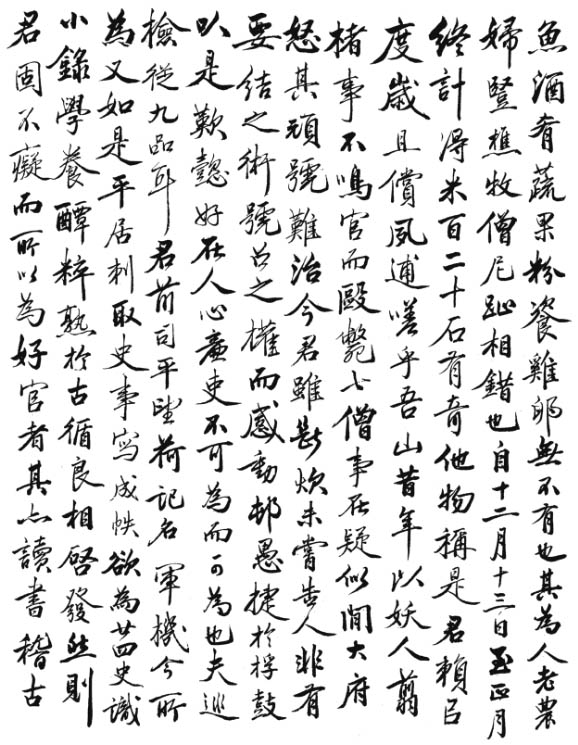 魚酒肴蔬果粉餈雞卵無不有也其為人老農
婦豎樵牧僧尼趾相錯也自十二月十三日至正月
終計得米百二十石有奇他物稱是君賴㠯
度歲且償夙逋嗟乎吾山昔年以妖人翦
楮事不鳴官而毆斃七僧事在疑似間大府
怒其頑號難治今君雖斷炊未嘗告人非有
要結之術號召之權而感動邨愚捷於桴鼓
㕥是歎懿好在人心廉吏不可為而可為也夫巡
檢從九品耳君前司平望荷記名軍機今所
為又如是平居刺取史事寫成帙欲為廿四史識
小錄學養醰粹熟於古循良相啓發然則
君固不癡而所以為好官者其亦讀書稽古